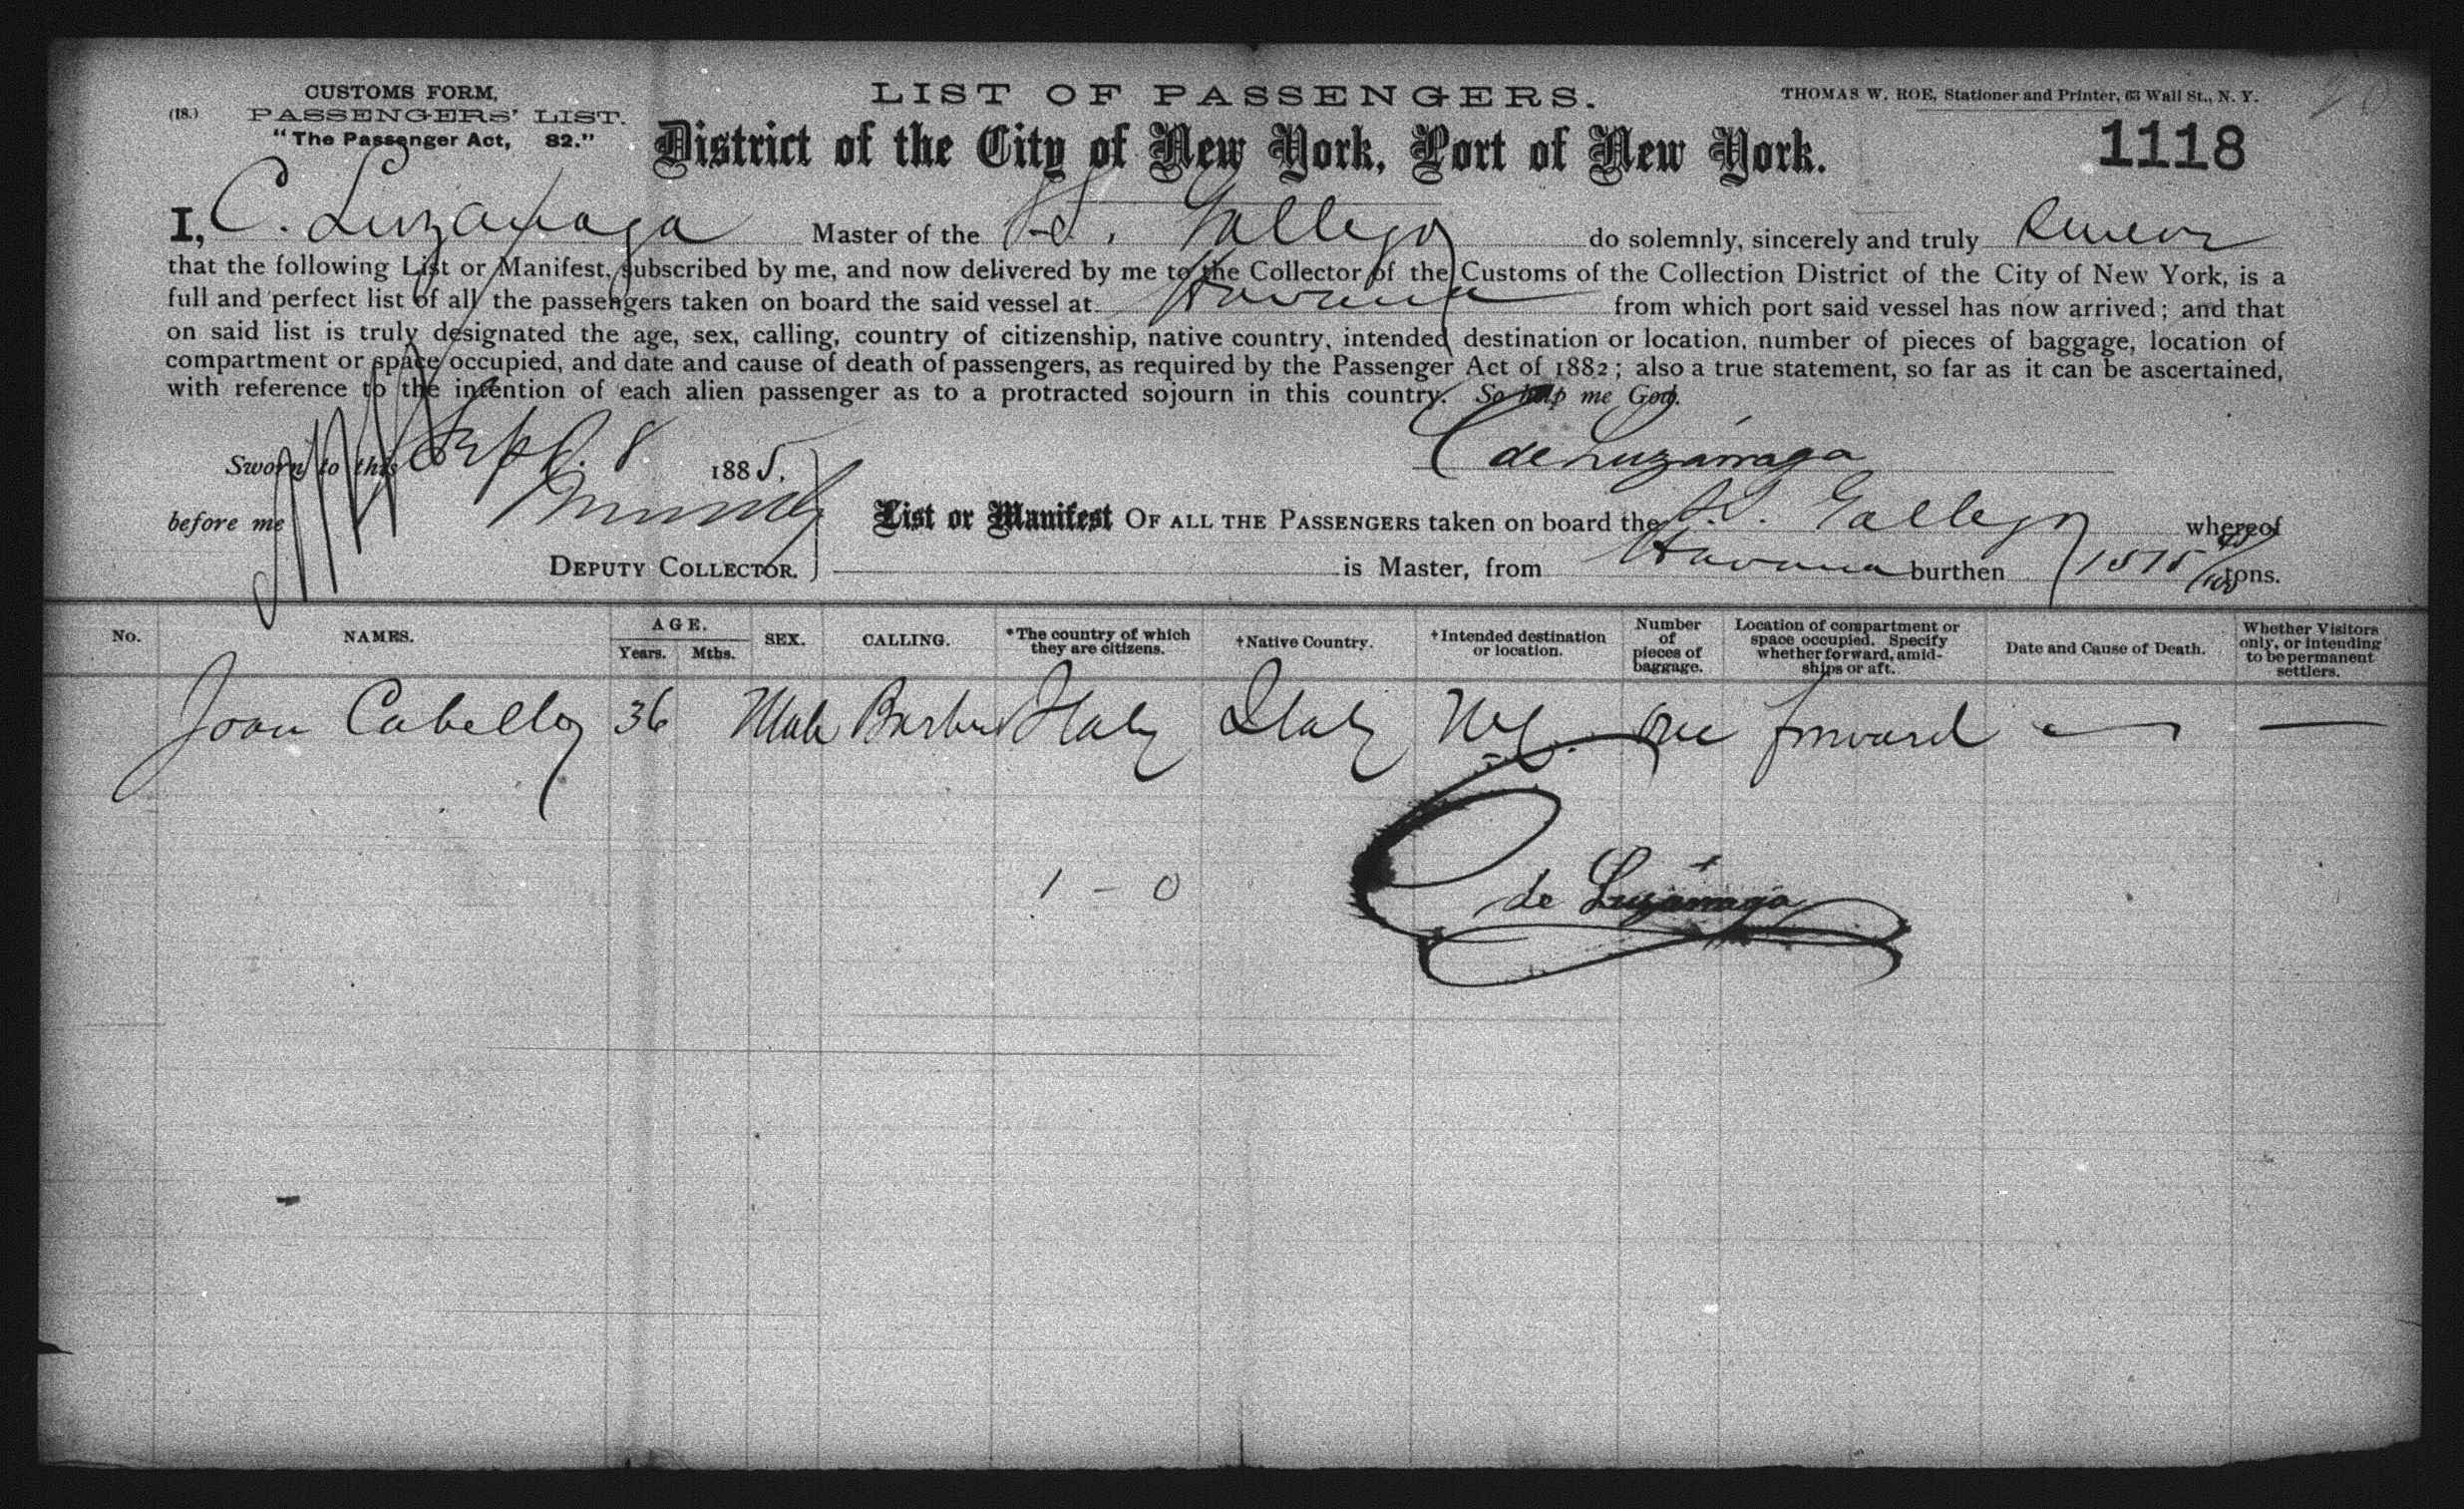 CUSTOMS FORM,
(18.) PASSENGERS' LIST.
"The Passenger Act, 82."
LIST OF PASSENGERS.
THOMAS W. ROE, Stationer and Printer, 63 Wall St., N. Y.
District of the City of New York, Port of New York.
1118
I, C. Luzarraga Master of the S.S. Gallego do solemnly, sincerely and truly swear
that the following List or Manifest, subscribed by me, and now delivered by me to the Collector of the Customs of the Collection District of the City of New York, is a
full and perfect list of all the passengers taken on board the said vessel at Havana from which port said vessel has now arrived; and that
on said list is truly designated the age, sex, calling, country of citizenship, native country, intended destination or location, number of pieces of baggage, location of
compartment or space occupied, and date and cause of death of passengers, as required by the Passenger Act of 1882; also a true statement, so far as it can be ascertained,
with reference to the intention of each alien passenger as to a protracted sojourn in this country. So help me God.
Sworn to this Sept. 8 1885,
C de Luzárraga
before me
DEPUTY COLLECTOR.
List or Manifest OF ALL THE PASSENGERS taken on board the S.S. Gallego whereof
is Master, from Havana burthen tons.
No. NAMES. AGE. Years. Mths. SEX. CALLING. *The country of which they are citizens. †Native Country. †Intended destination or location. Number of pieces of baggage. Location of compartment or space occupied. Specify whether forward, amidships or aft. Date and Cause of Death. Whether Visitors only, or intending to be permanent settlers.
Joan Cabello 36 Male Barber Italy Italy NY. One forward — —
1 - 0
C de Luzárraga